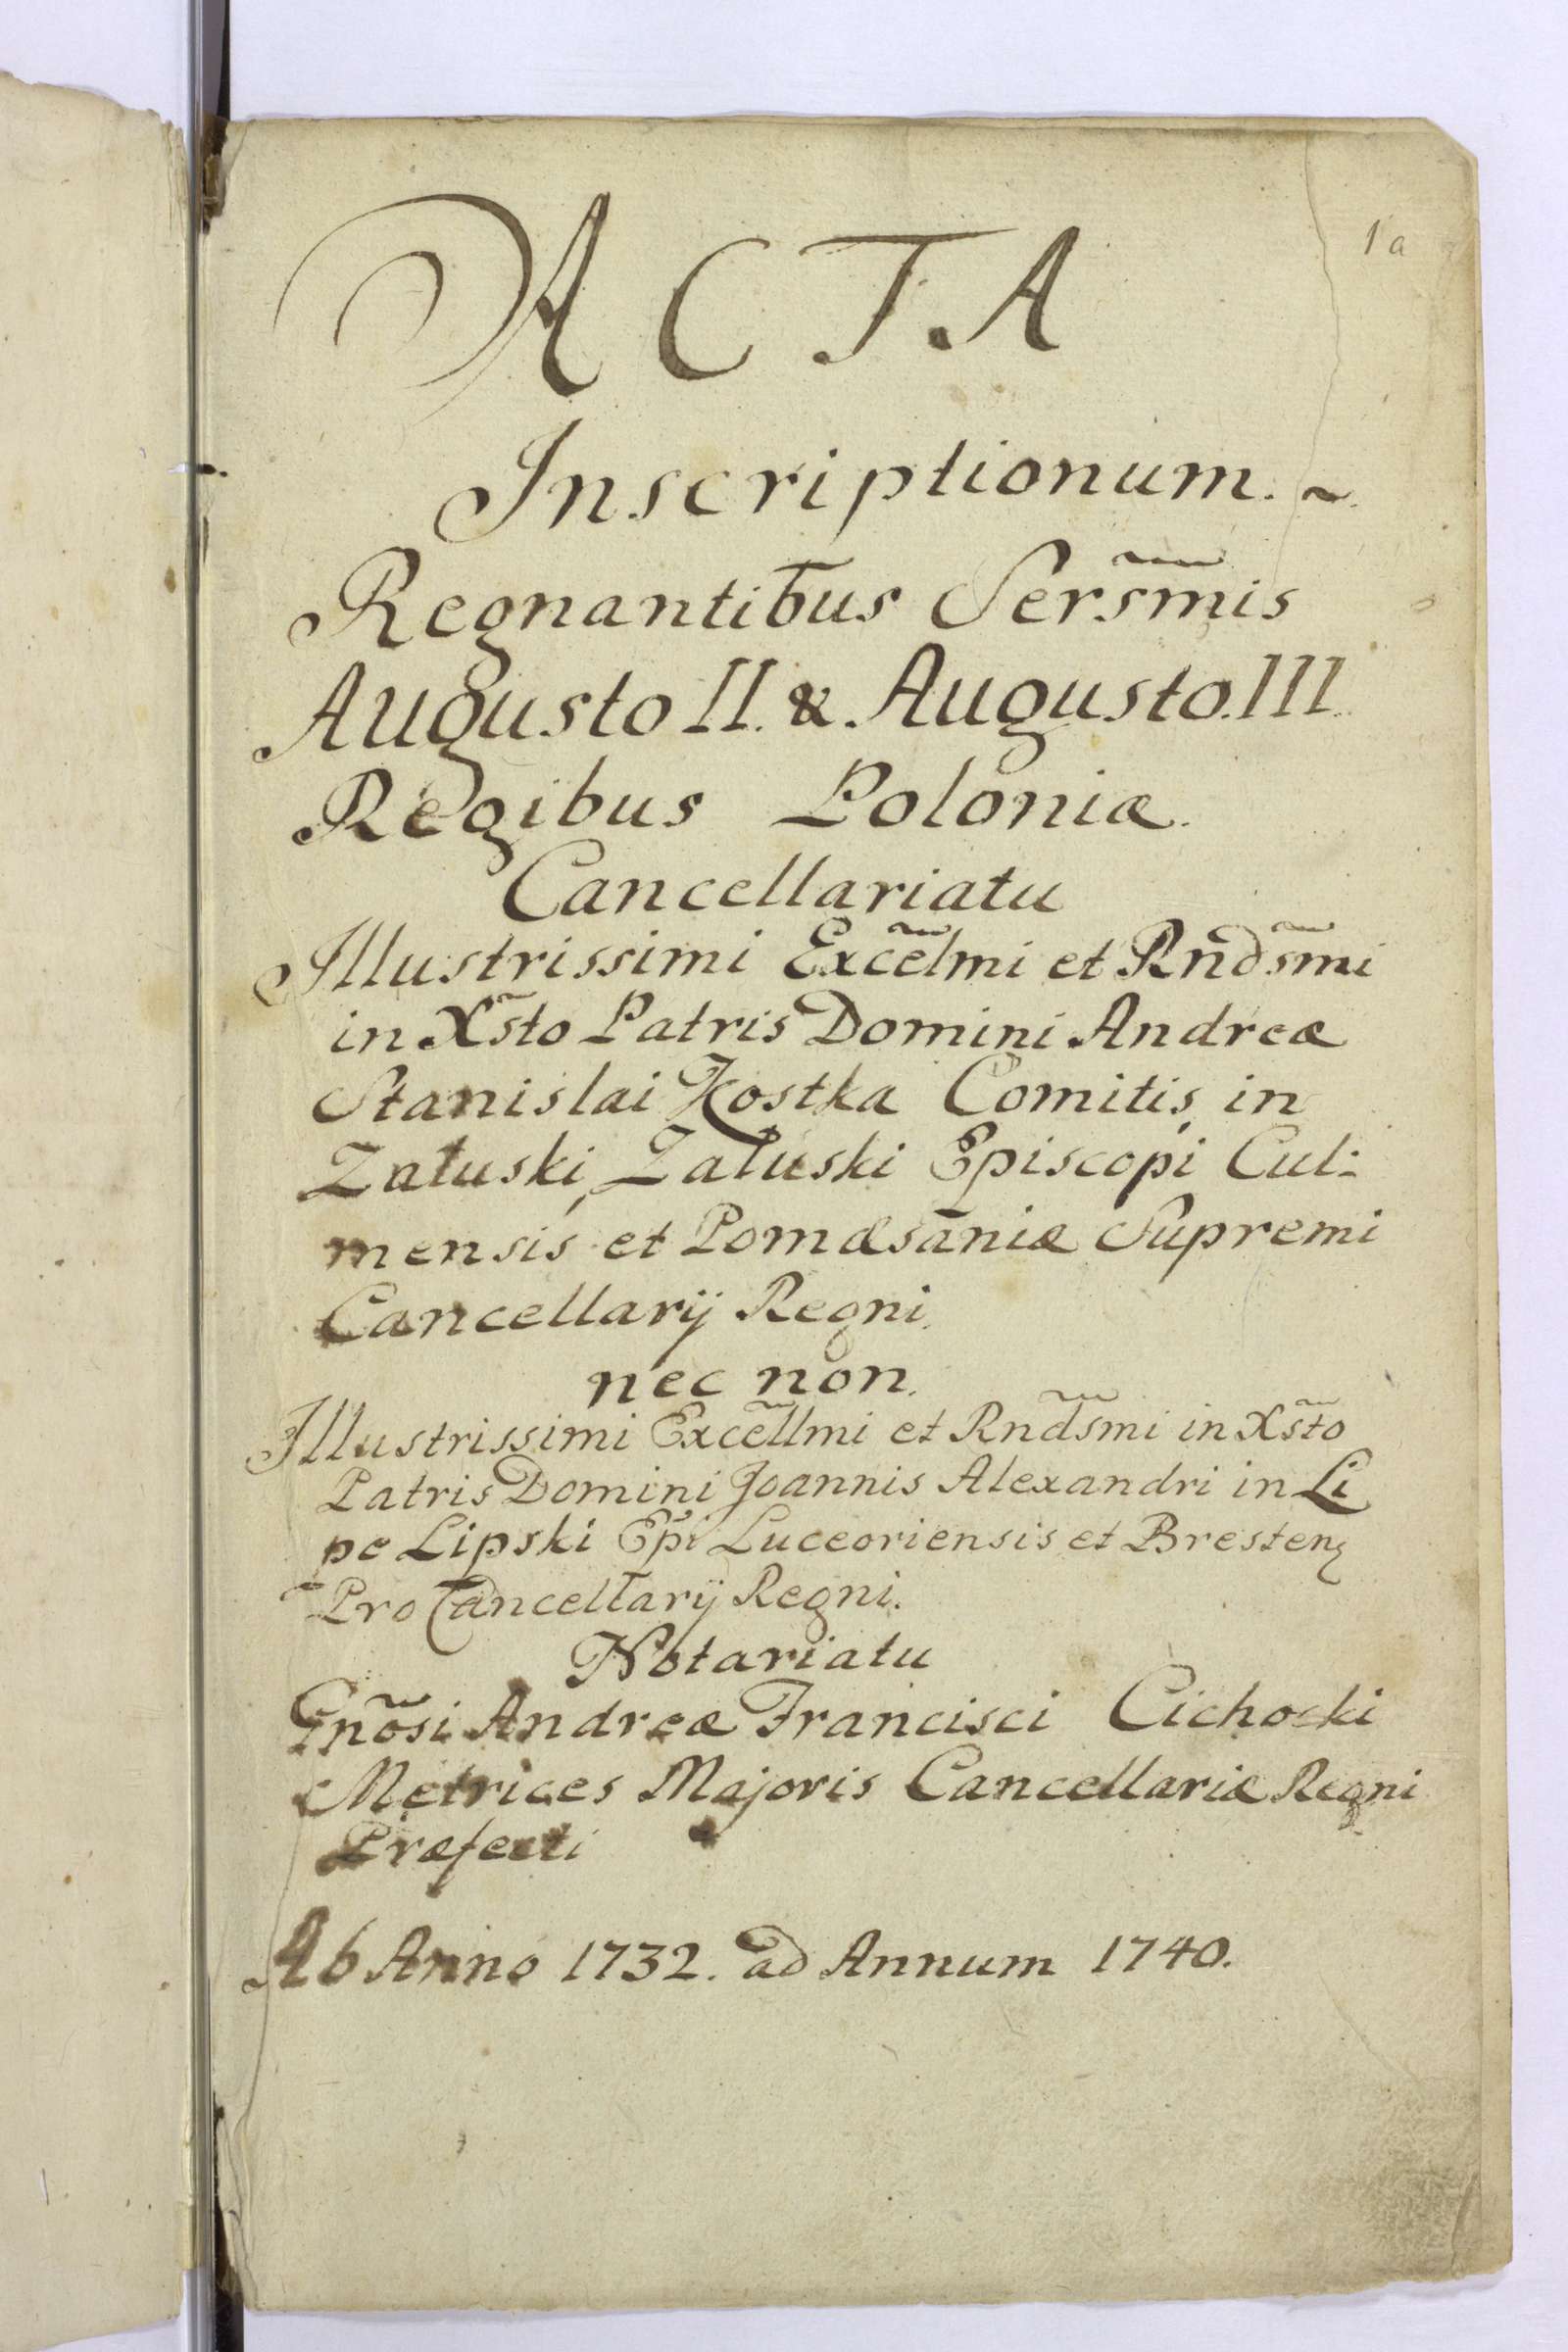 1a
ACTA
Inscriptionum. ~
Regnantibus Sers̃mis
Augusto II. & Augusto. III
Regibus Poloniæ.
Cancellariatu
Illustrissimi Excẽlmi et Rnds̃mi
in Xs̃to Patris Domini Andreæ
Stanislai Kostka Comitis in
Zaluski, Zaluski Episcopi Cul:
mensis et Pomæsaniæ Supremi
Cancellarij Regni.
nec non.
Illustrissimi Excẽllmi et Rnds̃mi in Xs̃to
Patris Domini Joannis Alexandri in Li
pe Lipski Epi Luceoriensis et Bresten̨
Pro Cancellarij Regni.
Notariatu
Gnõsi Andreæ Francisci Cichocki
Metrices Majoris Cancellariæ Regni
Præfecti
Ab Anno 1732. ad Annum 1740.